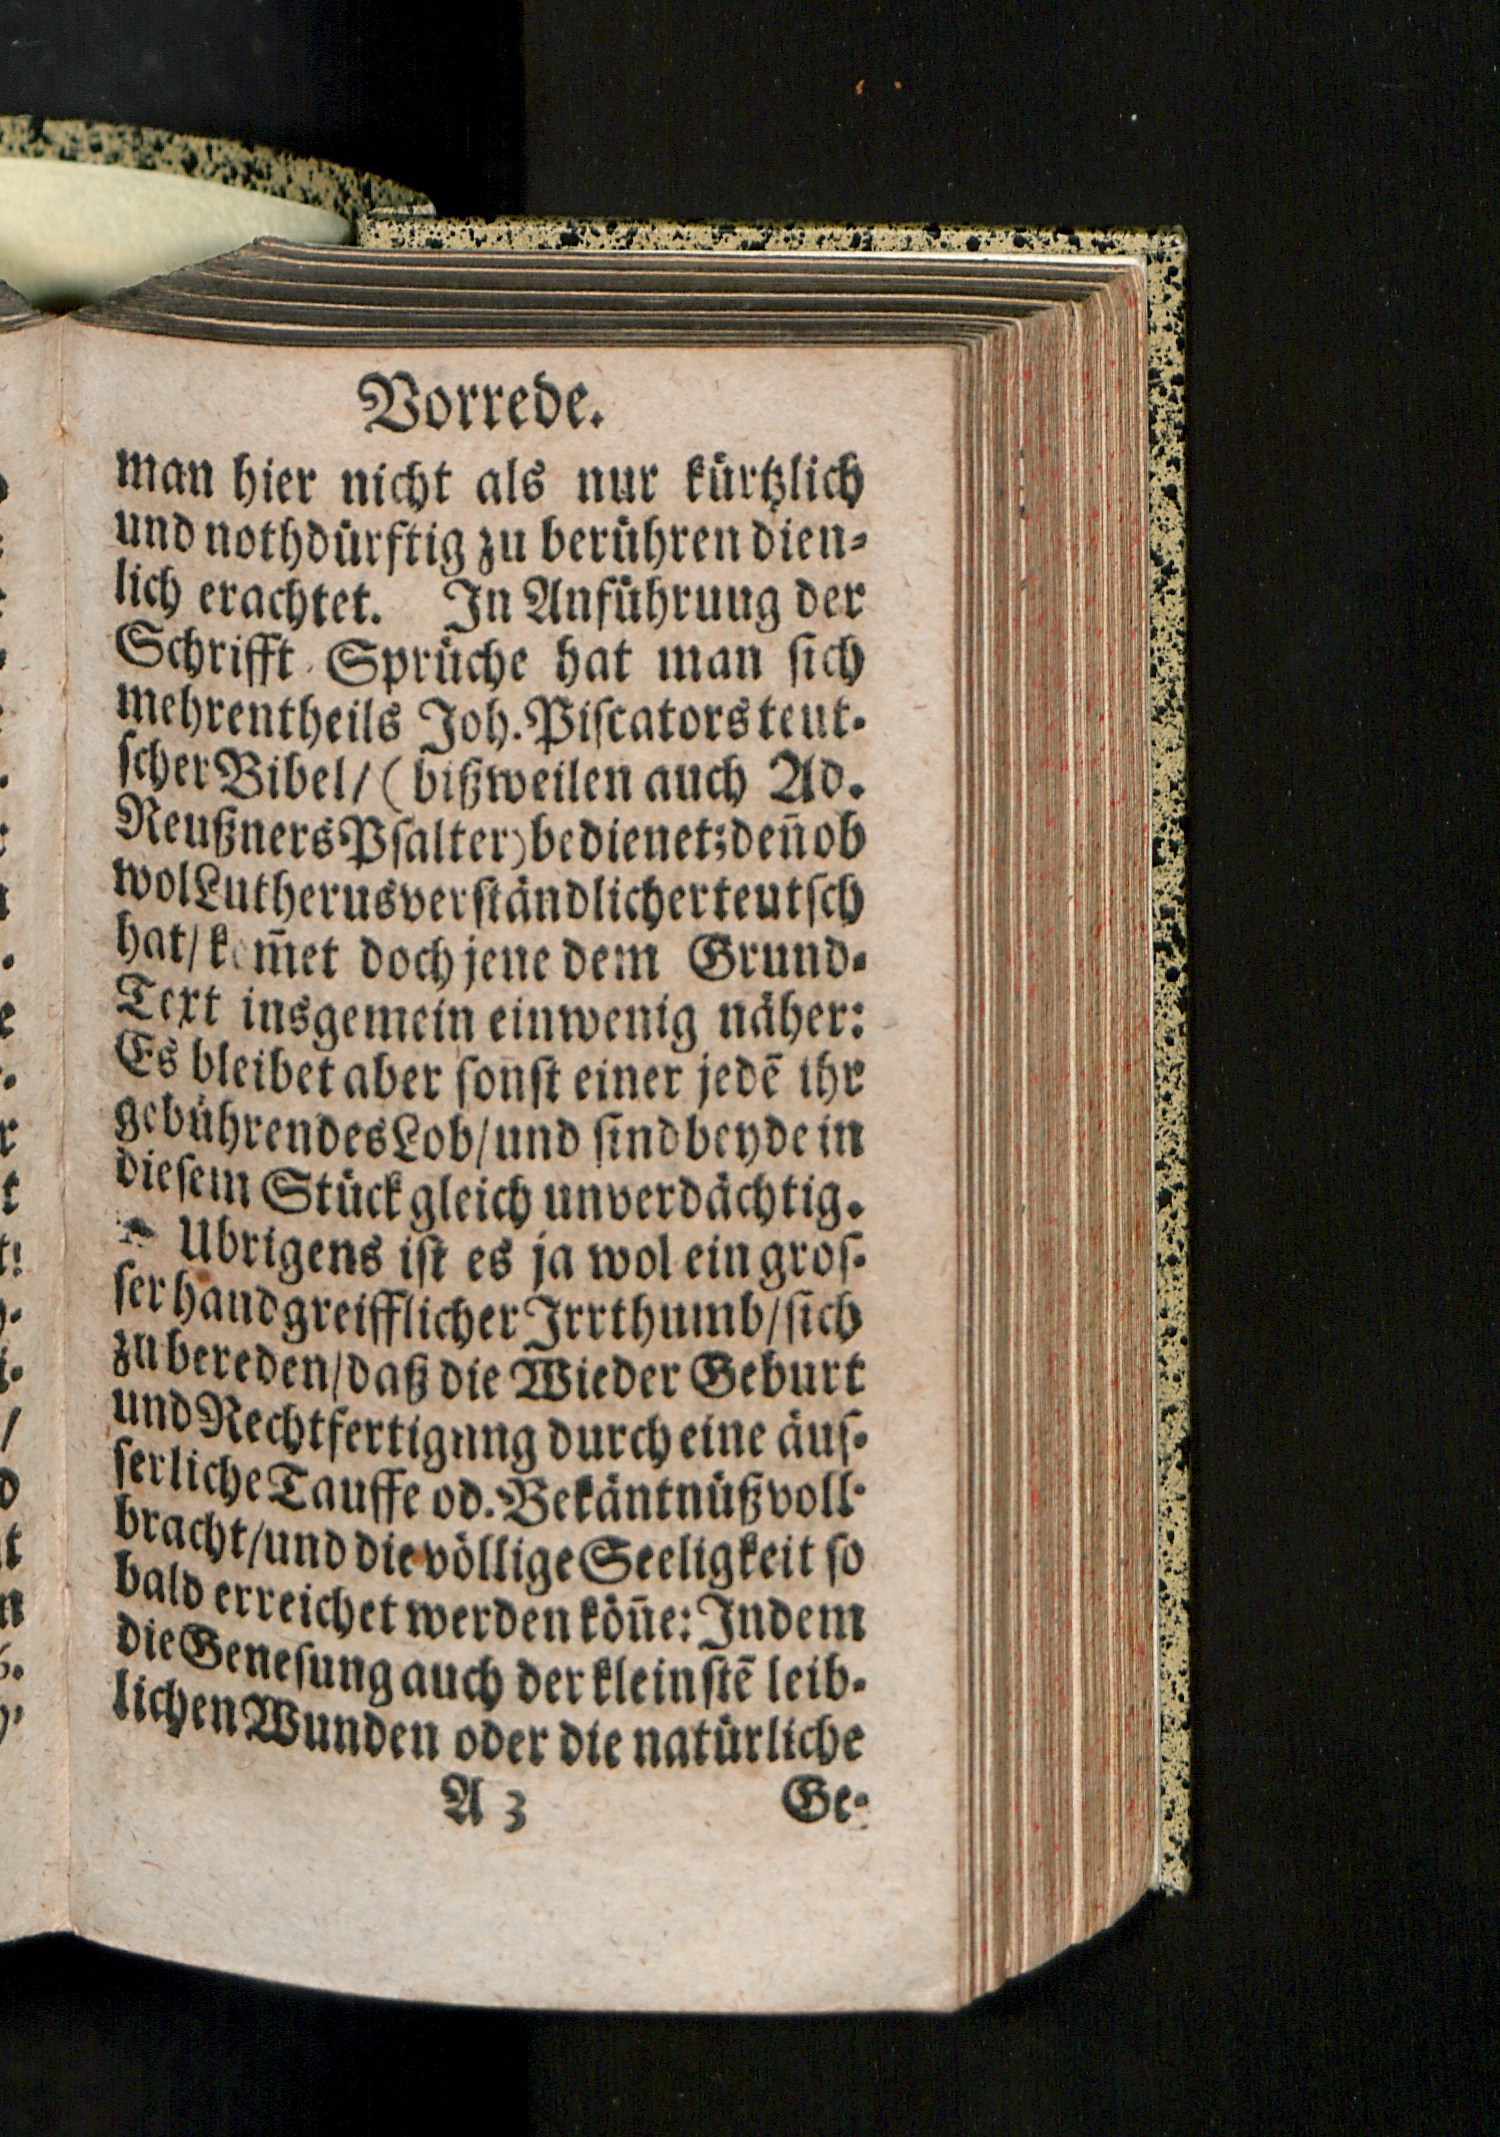 Vorrede.
man hier nicht als nur kürtzlich
und nothdürftig zu berühren dien-
lich erachtet. In Anführung der
Schrifft Sprüche hat man sich
mehrentheils Joh. Piscators teut-
scher Bibel/ (bißweilen auch Ad.
Reußners Psalter) bedienet; deñ ob
wol Lutherus verständlicher teutsch
hat/ kom̃et doch jene dem Grund-
Text insgemein einwenig näher:
Es bleibet aber sonst einer jedē ihr
gebührendes Lob/ und sind beyde in
diesem Stück gleich unverdächtig.
Ubrigens ist es ja wol ein gros-
ser handgreifflicher Irrthumb/ sich
zu bereden/ daß die Wieder Geburt
und Rechtfertigung durch eine äus-
serliche Tauffe od. Bekäntnüß voll-
bracht/ und die völlige Seeligkeit so
bald erreichet werden köñe: Indem
die Genesung auch der kleinstē leib-
lichen Wunden oder die natürliche
A 3 Ge-